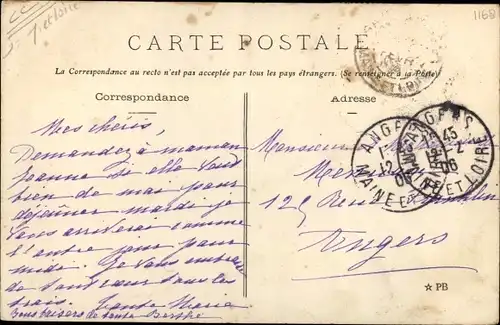 1168
I. et Loire
CARTE POSTALE
La Correspondance au recto n'est pas acceptée par tous les pays étrangers. (Se renseigner à la Poste)
Correspondance
Adresse
Mes chéris,
Demandez à maman
Jeanne si elle veut
bien de moi pour
déjeûner mardi je
vous arriverai comme
l'autre jour pour
midi. Je vous embrasse
de tout cœur tous les
trois. Tante Maria
Bons baisers de tante Berthe
Monsieur
125 Rue
Angers
ANGERS
MAINE ET LOIRE
ANGERS
45
06
MAINE ET LOIRE
☆ PB